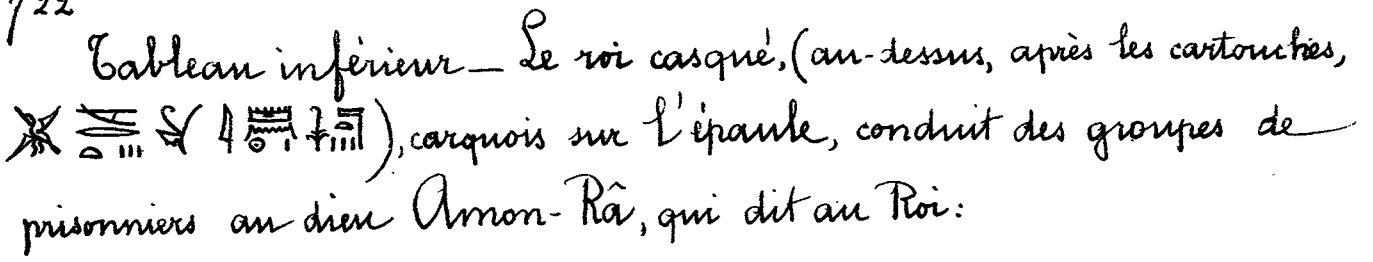 722
Tableau inférieur _ Le roi casqué, (au-dessus, après les cartouches,
), carquois sur l'épaule, conduit des groupes de
prisonniers au dieu Amon-Râ, qui dit au Roi: